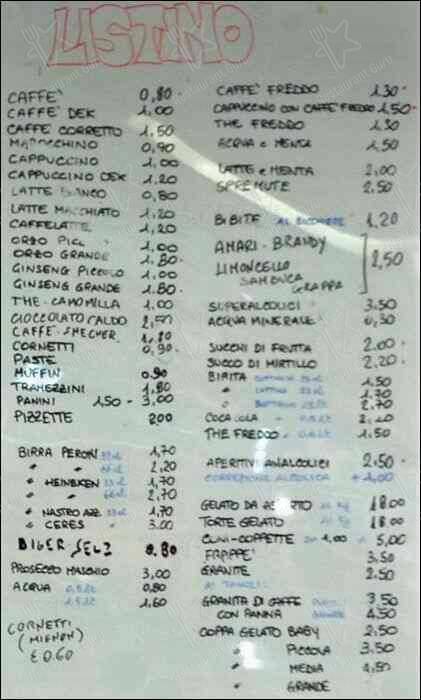 LISTINO
CAFFE' 0,80
CAFFE' DEK 1,00
CAFFE' CORRETTO 1,50
MAROCCHINO 0,90
CAPPUCCINO 1,00
CAPPUCCINO DEK 1,20
LATTE BIANCO 0,80
LATTE MACCHIATO 1,20
CAFFELATTE 1,20
ORZO PICC. 1,00
ORZO GRANDE 1.80
GINSENG PICCOLO 1,00
GINSENG GRANDE 1.80
THE - CAMOMILLA 1,00
CIOCCOLATO CALDO 2,50
CAFFE' SHECHER.
CORNETTI 0,90
PASTE
MUFFIN 0,90
TRAMEZZINI 1,80
PANINI 1,50 - 3,00
PIZZETTE 2,00
BIRRA PERONI 33 cl 1,70
" " 66 cl 2,20
" HEINEKEN 33 cl 1,70
" " 66 cl 2,70
" NASTRO AZZ. 33 cl 1,70
" CERES 3,00
BIGER SELZ 0.80
PROSECCO MASCHIO 3,00
ACQUA 0,5 Lt 0,80
1,5 Lt 1,60
CORNETTI
(MIGNON)
€ 0.60
CAFFE' FREDDO 1.30
CAPPUCCINO CON CAFFE' FREDDO 1,50
THE FREDDO 1,30
ACQUA e MENTA 1,50
LATTE e MENTA 2,00
SPREMUTE 2,50
BIBITE AL BICCHIERE 1,20
AMARI - BRANDY
LIMONCELLO 2,50
SAMBUCA
GRAPPA
SUPERALCOLICI 3,50
ACQUA MINERALE 0,30
SUCCHI DI FRUTTA 2,00
SUCCO DI MIRTILLO 2,20
BIBITA 1,50
" LATTINA 33 cl 1,70
" 2,70
COCA COLA
THE FREDDO 1,50
APERITIVI ANALCOLICI 2,50
CORREZIONE ALCOLICA + 1,00
GELATO DA ASPORTO Al Kg 18.00
TORTE GELATO 18.00
CONI-COPPETTE da 1,00 a 5,00
FRAPPE' 3,50
GRANITE 2,50
AI TAVOLI:
GRANITA DI CAFFE 3,50
CON PANNA 4,50
COPPA GELATO BABY 2,50
" PICCOLA 3,50
" MEDIA 4,50
" GRANDE